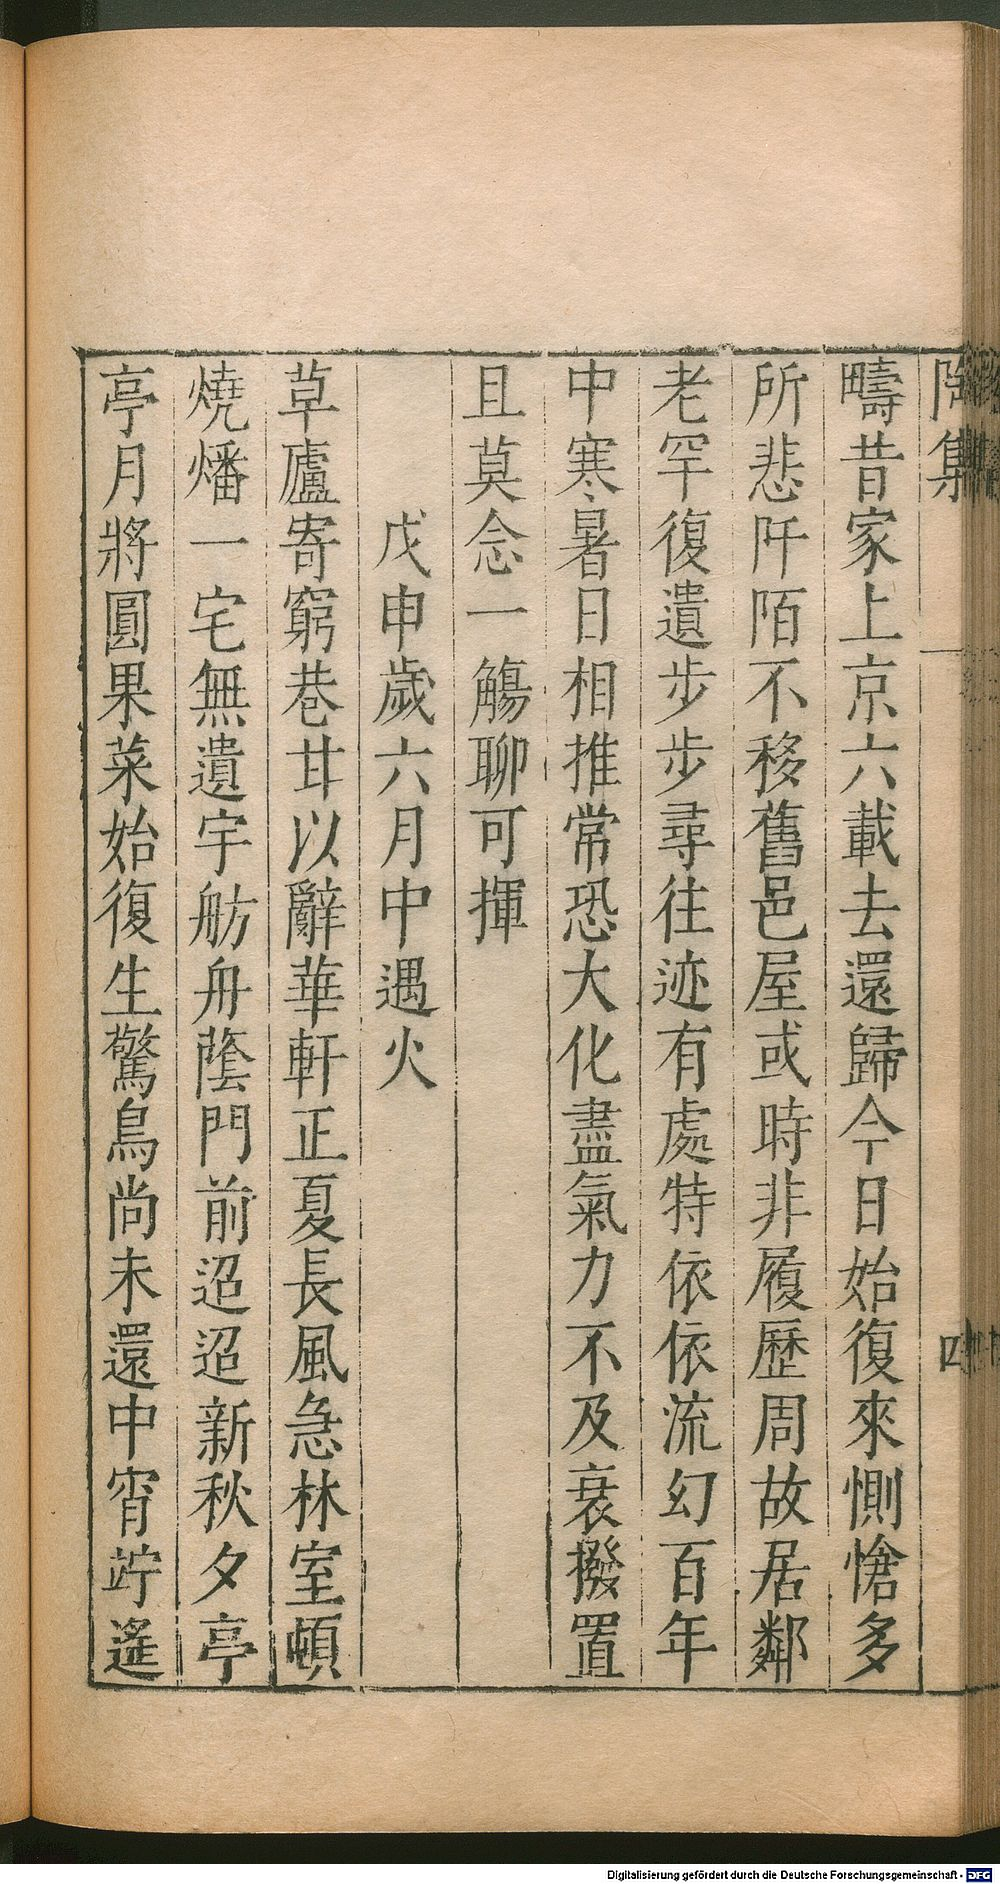 陶集
四
疇昔家上京六載去還歸今日始復來惻愴多
所悲阡陌不移舊邑屋或時非履歷周故居鄰
老罕復遺步步尋往迹有處特依依流幻百年
中寒暑日相推常恐大化盡氣力不及衰撥置
且莫念一觴聊可揮
戊申歲六月中遇火
草廬寄窮巷甘以辭華軒正夏長風急林室頓
燒燔一宅無遺宇舫舟蔭門前迢迢新秋夕亭
亭月將圓果菜始復生驚鳥尚未還中宵竚遙
Digitalisierung gefördert durch die Deutsche Forschungsgemeinschaft - DFG